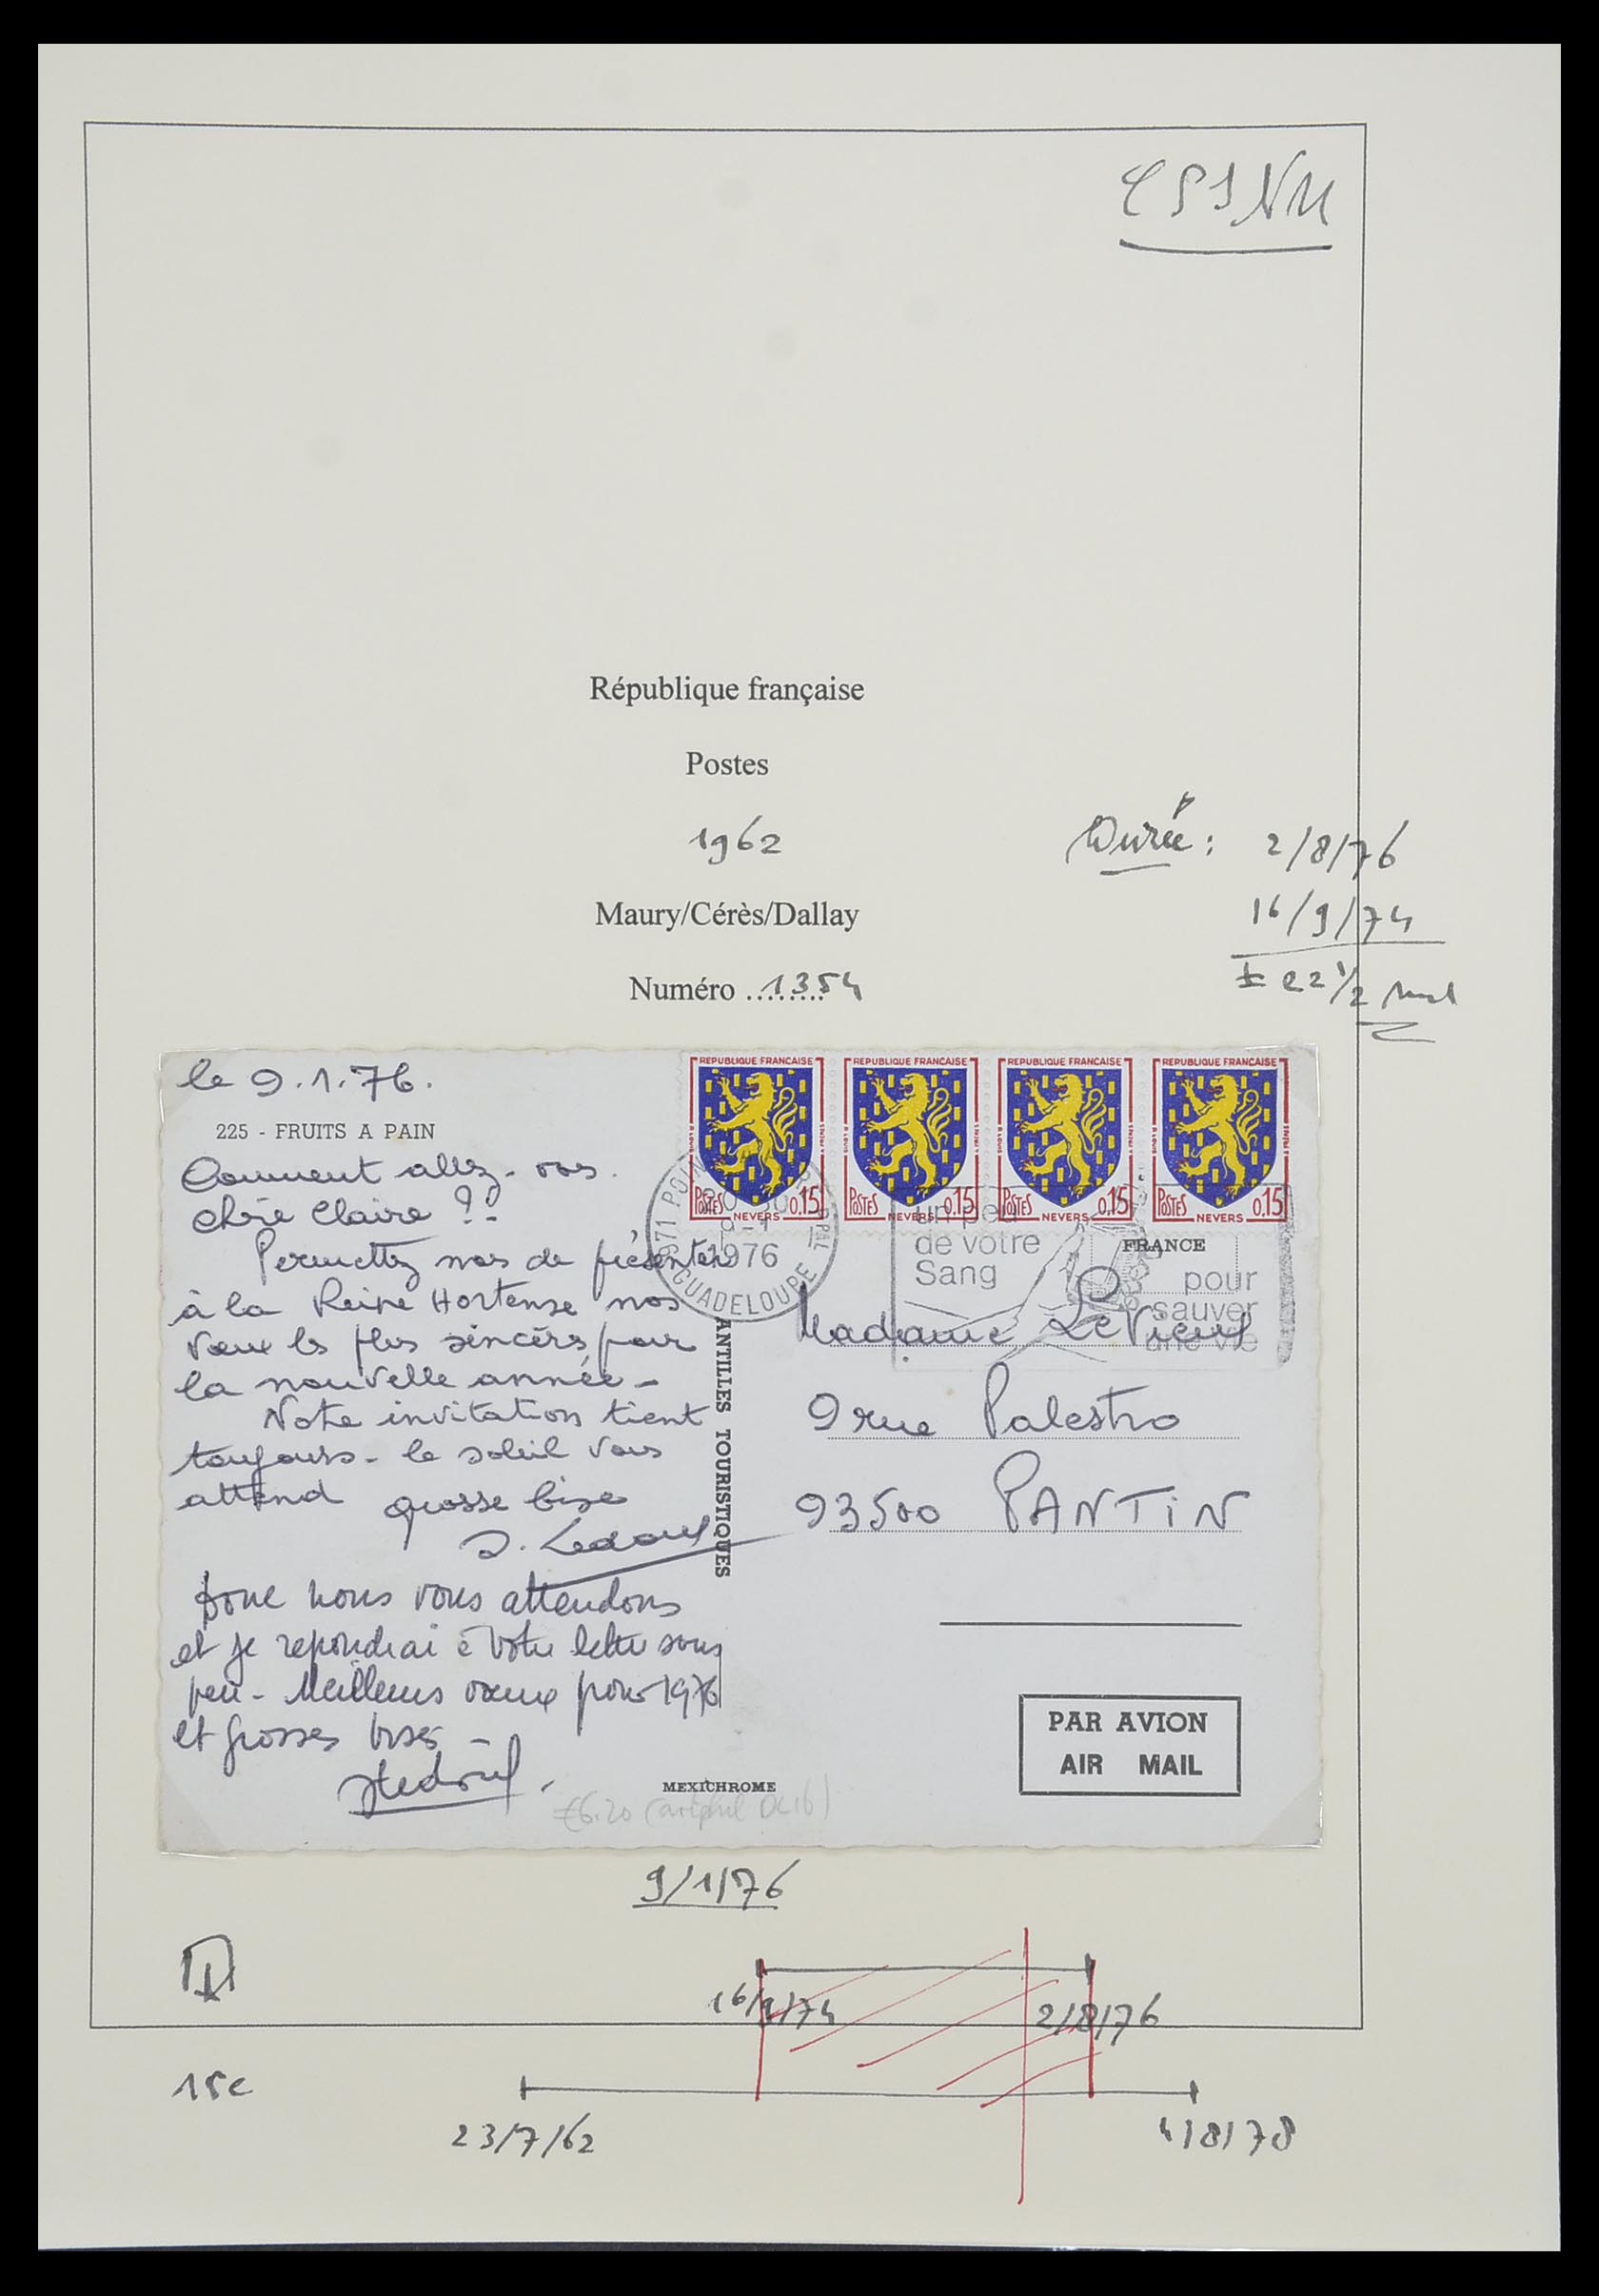 République française
Postes
1962
Maury/Cérès/Dallay
Numéro ........1354
Durée : 2/8/76
16/9/74
± 22 1/2
le 9.1.76.
225 - FRUITS A PAIN
Comment allez-vous.
Chère Claire ?!
Permettez nous de présenter
à la Reine Hortense nos
vœux les plus sincères pour
la nouvelle année -
Notre invitation tient
toujours - le soleil vous
attend grosse bise
Donc nous vous attendons
et je repondrai à votre lettre sous
peu - Meilleurs vœux pour 1976
et grosses bises -
REPUBLIQUE FRANÇAISE
POSTES 0.15
NEVERS
REPUBLIQUE FRANÇAISE
POSTES 0.15
NEVERS
REPUBLIQUE FRANÇAISE
POSTES 0.15
NEVERS
REPUBLIQUE FRANÇAISE
POSTES 0.15
NEVERS
971
9-1
1976
GUADELOUPE
un peu
de votre
Sang
pour
sauver
une vie
FRANCE
ANTILLES TOURISTIQUES
Madame
9 rue Palestro
93500 PANTIN
PAR AVION
AIR MAIL
MEXICHROME
9/1/76
16/9/74
2/8/76
15c
23/7/62
4/8/78